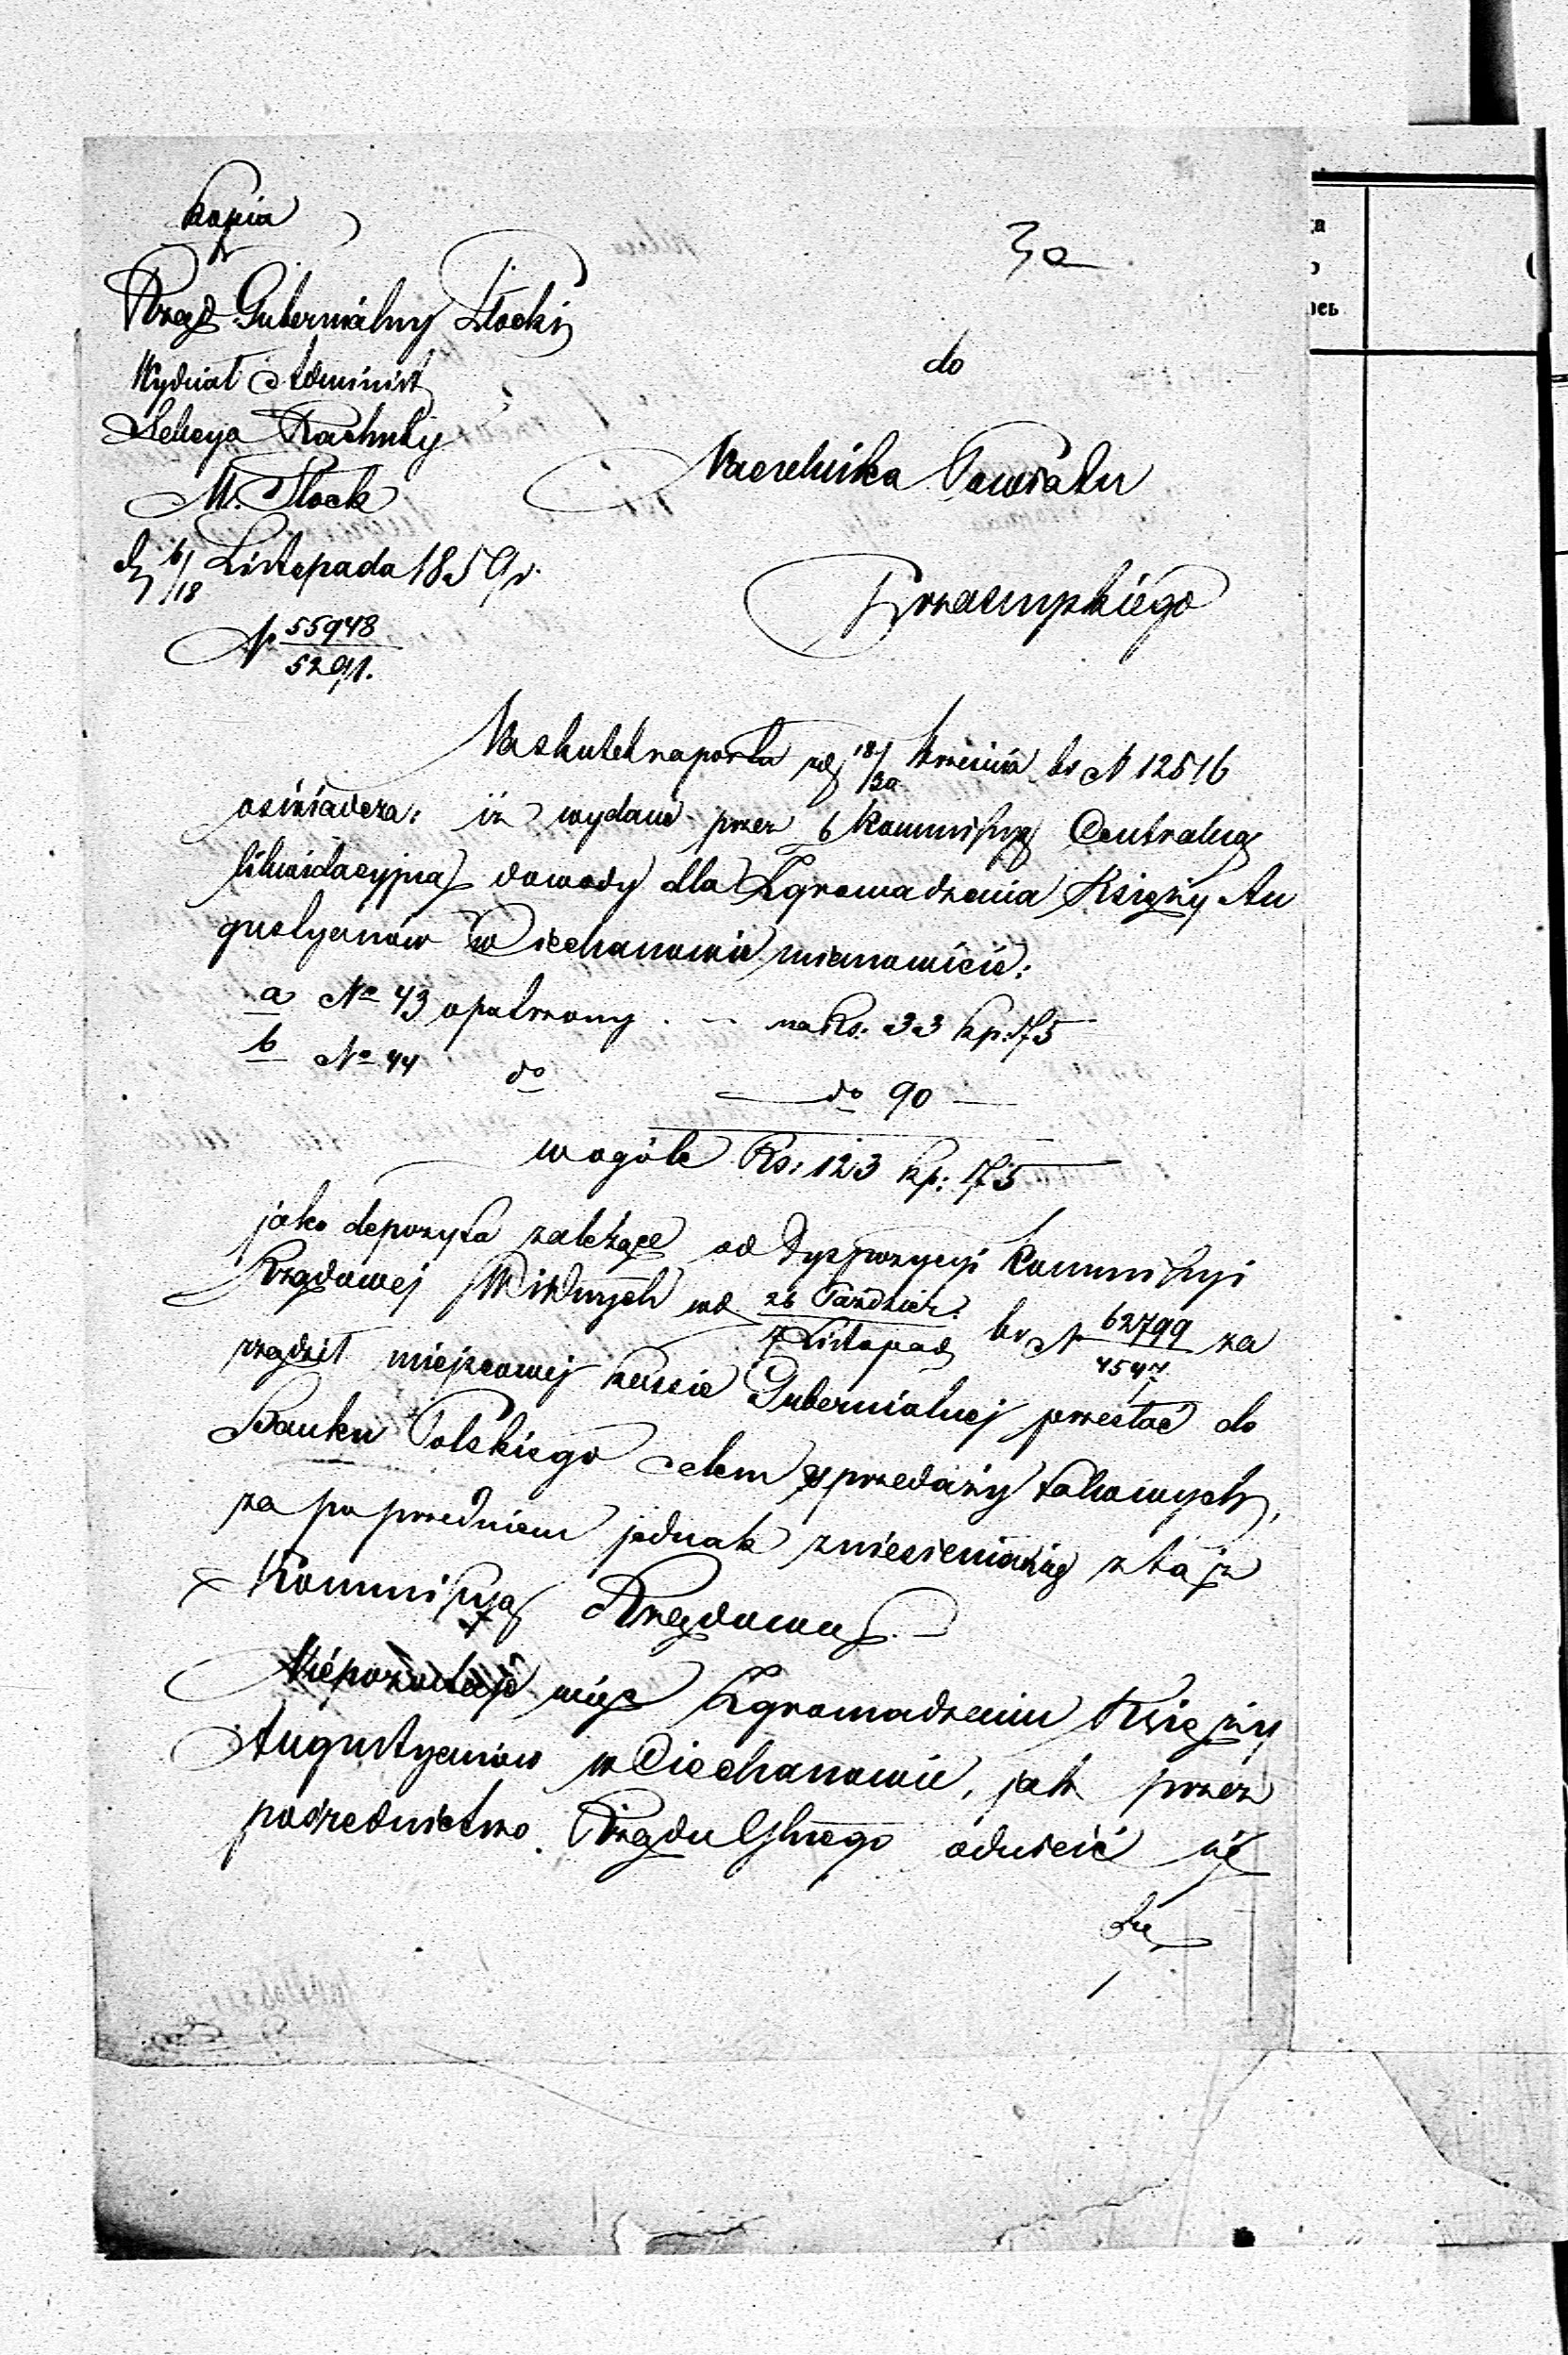 Kopia
3a
Rząd Gubernialny Płocki
Wydział Administ
Sekcya Rachuby
M. Płock
d 6/18 Listopada 1859 r.
N 55948/5291.
do
Naczelnika Powiatu
Przasnyskiego
Na skutek raportu z d 18/30 Września b r N 12516
oświadcza: iż wydane przez b Kommissyą Centralną
likwidacyjną dowody dla Zgromadzenia Księży Au
gustyanów w Ciechanowie mianowicie:
a No 43 opatrzony . — na Rs: 33 kp: 75
b No 44 do — do 90 —
wogóle Rs: 123 kp: 75
jako depozyta zależące od dyspozycyi Kommissyi
Rządowej od 26 Paździer:/7 Listopad b r N 62799/4547 za
rządził miejscowej kassie Gubernialnej przesłać do
Banku Polskiego celem sprzedaży takowych,
za poprzedniem jednak zniesieniem się z tąż
Kommissyą Rządową. —
Niepozostaje więc Zgromadzeniu Księży
Augustyanów w Ciechanowie, jak przez
pośrednictwo Rządu Glnego odnieść się